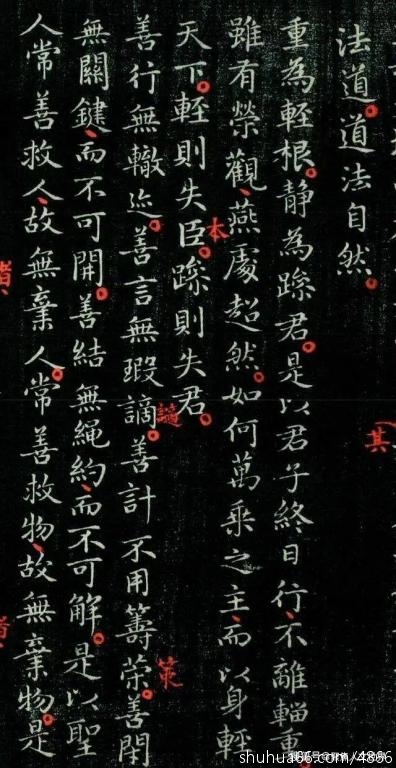 法道。道法自然。
重為輕根。静為躁君。是以君子終日行、不離輜重。
雖有榮觀、燕處超然。如何萬乘之主、而以身輕
天下。輕則失臣。躁則失君。
善行無轍迹。善言無瑕謫。善計不用籌䇲。善閇
無關鍵、而不可開。善結無繩約、而不可解。是以聖
人常善救人、故無棄人。常善救物、故無棄物。是
其
本
策
shuhua66.com/4886